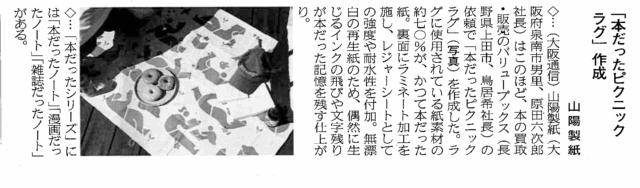 「本だったピクニック
ラグ」作成
山陽製紙
◇…（大阪通信）山陽製紙（大
阪府泉南市男里、原田六次郎
社長）はこのほど、本の買取
・販売のバリューブックス（長
野県上田市、鳥居希社長）の
依頼で「本だったピクニック
ラグ」（写真）を作成した。ラ
グに使用されている紙素材の
約七〇％が、かつて本だった
紙。裏面にラミネート加工を
施し、レジャーシートとして
の強度や耐水性を付加。無漂
白の再生紙のため、偶然に生
じるインクの飛びや文字残り
が本だった記憶を残す仕上が
り。
◇…「本だったシリーズ」に
は「本だったノート」「漫画だっ
たノート」「雑誌だったノート」
がある。